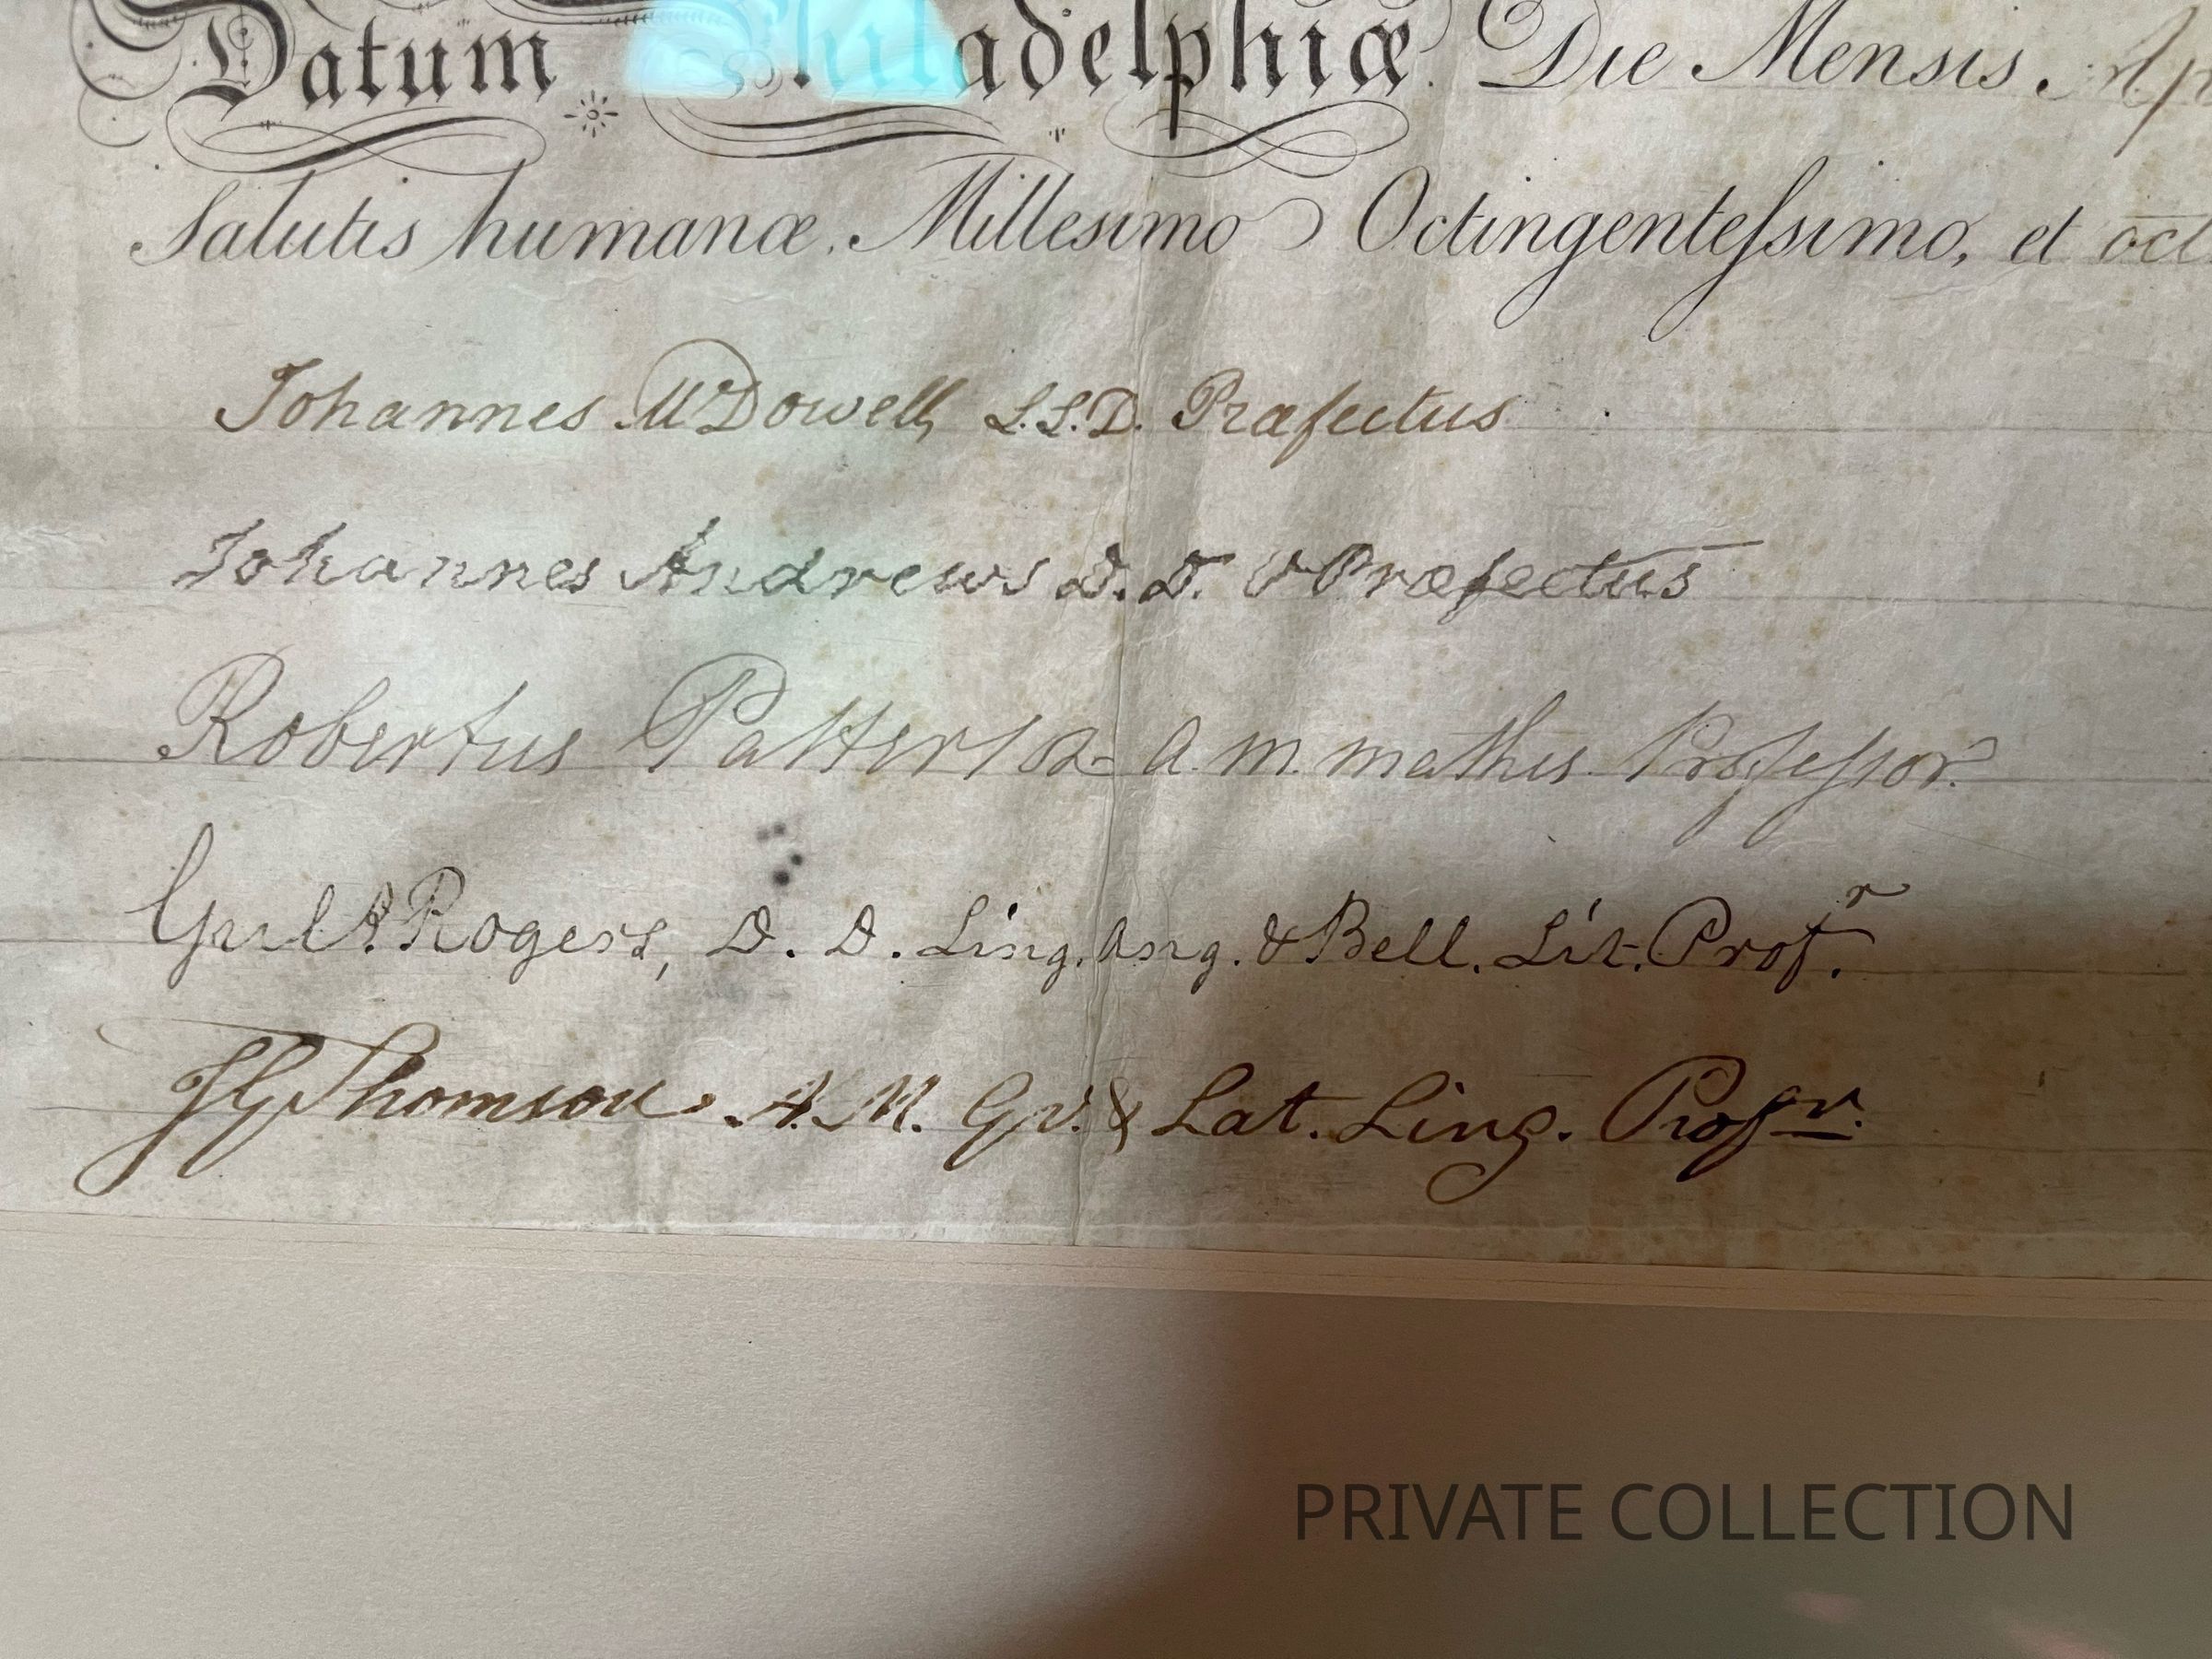 Datum Philadelphiæ Die Mensis
Salutis humanæ, Millesimo Octingentessimo, et
Johannes McDowell, L.L.D. Præfectus
Johannes Andrews D.D. V Præfectus
Robertus Patterson A.M. Mathes. Professor
Gul. Rogers, D.D. Ling. Ang. & Bell. Lit. Profr.
JGThomson. A.M. Gr. & Lat. Ling. Profr.
PRIVATE COLLECTION